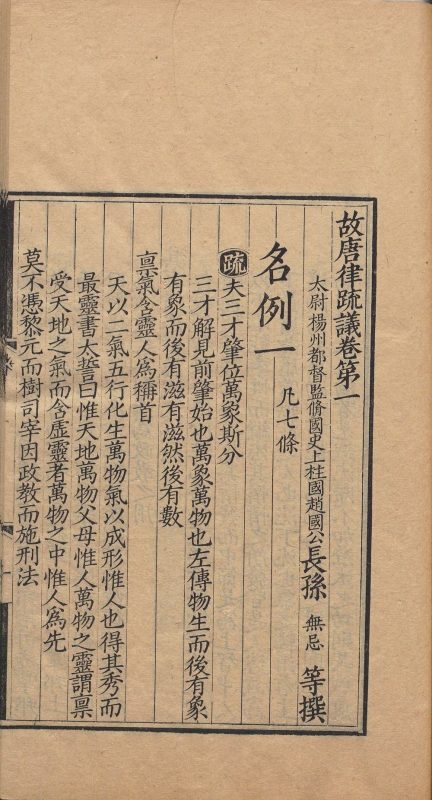 故唐律疏議卷第一
太尉揚州都督監脩國史上柱國趙國公長孫無忌等撰
名例一 凡七條
疏夫三才肇位萬象斯分
三才解見前肇始也萬象萬物也左傳物生而後有象
有象而後有滋有滋然後有數
禀氣含靈人爲稱首
天以二氣五行化生萬物氣以成形惟人也得其秀而
最靈書太誓曰惟天地萬物父母惟人萬物之靈謂禀
受天地之氣而含虛靈者萬物之中惟人爲先
莫不憑黎元而樹司宰因政教而施刑法